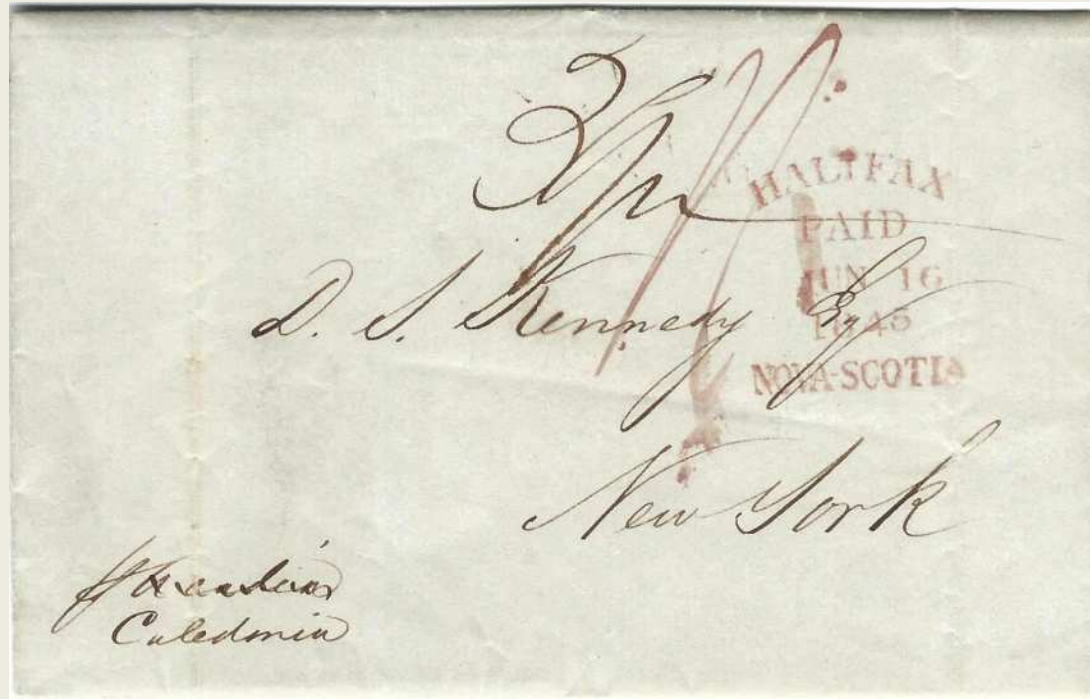 HALIFAX
PAID
JUN 16
1845
NOVA-SCOTIA
D. S. Kennedy Esq
New York
Caledonia